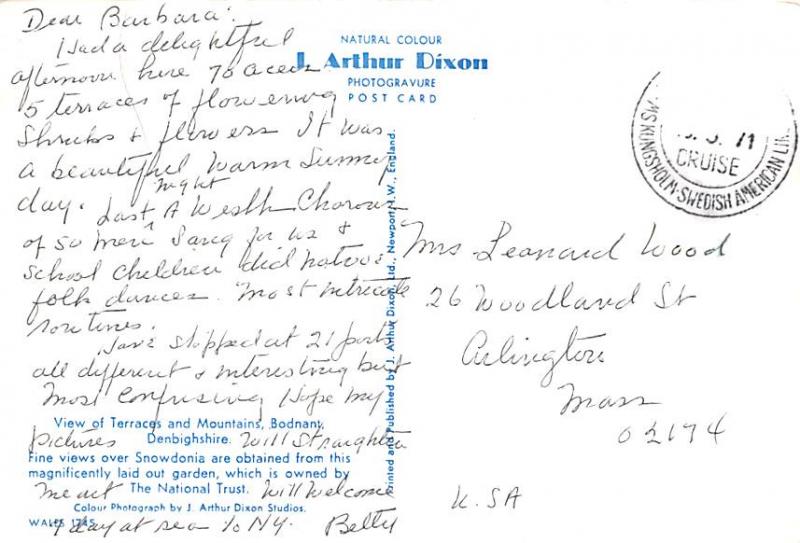 Dear Barbara:
Had a delightful
afternoon here 70 acres
5 terraces of flowering
Shrubs & flowers It was
a beautiful warm Sunny
day. Last night A Welsh Chorous
of 50 men Sang for us &
school children did native
folk dances. Most intricate
routines.
stopped at 21 ports
all different & interesting but
most confusing Hope my
View of Terraces and Mountains, Bodnant,
pictures Denbighshire. Will straighten
Fine views over Snowdonia are obtained from this
magnificently laid out garden, which is owned by
me out The National Trust. Will welcome
Colour Photograph by J. Arthur Dixon Studios.
WALES 1745
day at sea to NY. Betty
NATURAL COLOUR
J. Arthur Dixon
PHOTOGRAVURE
POST CARD
Printed and Published by J. Arthur Dixon Ltd., Newport, I.W., England.
MS KUNGSHOLM-SWEDISH AMERICAN LINE
71
CRUISE
Mrs Leonard Wood
26 Woodland St
Arlington
Mass
02174
U.SA